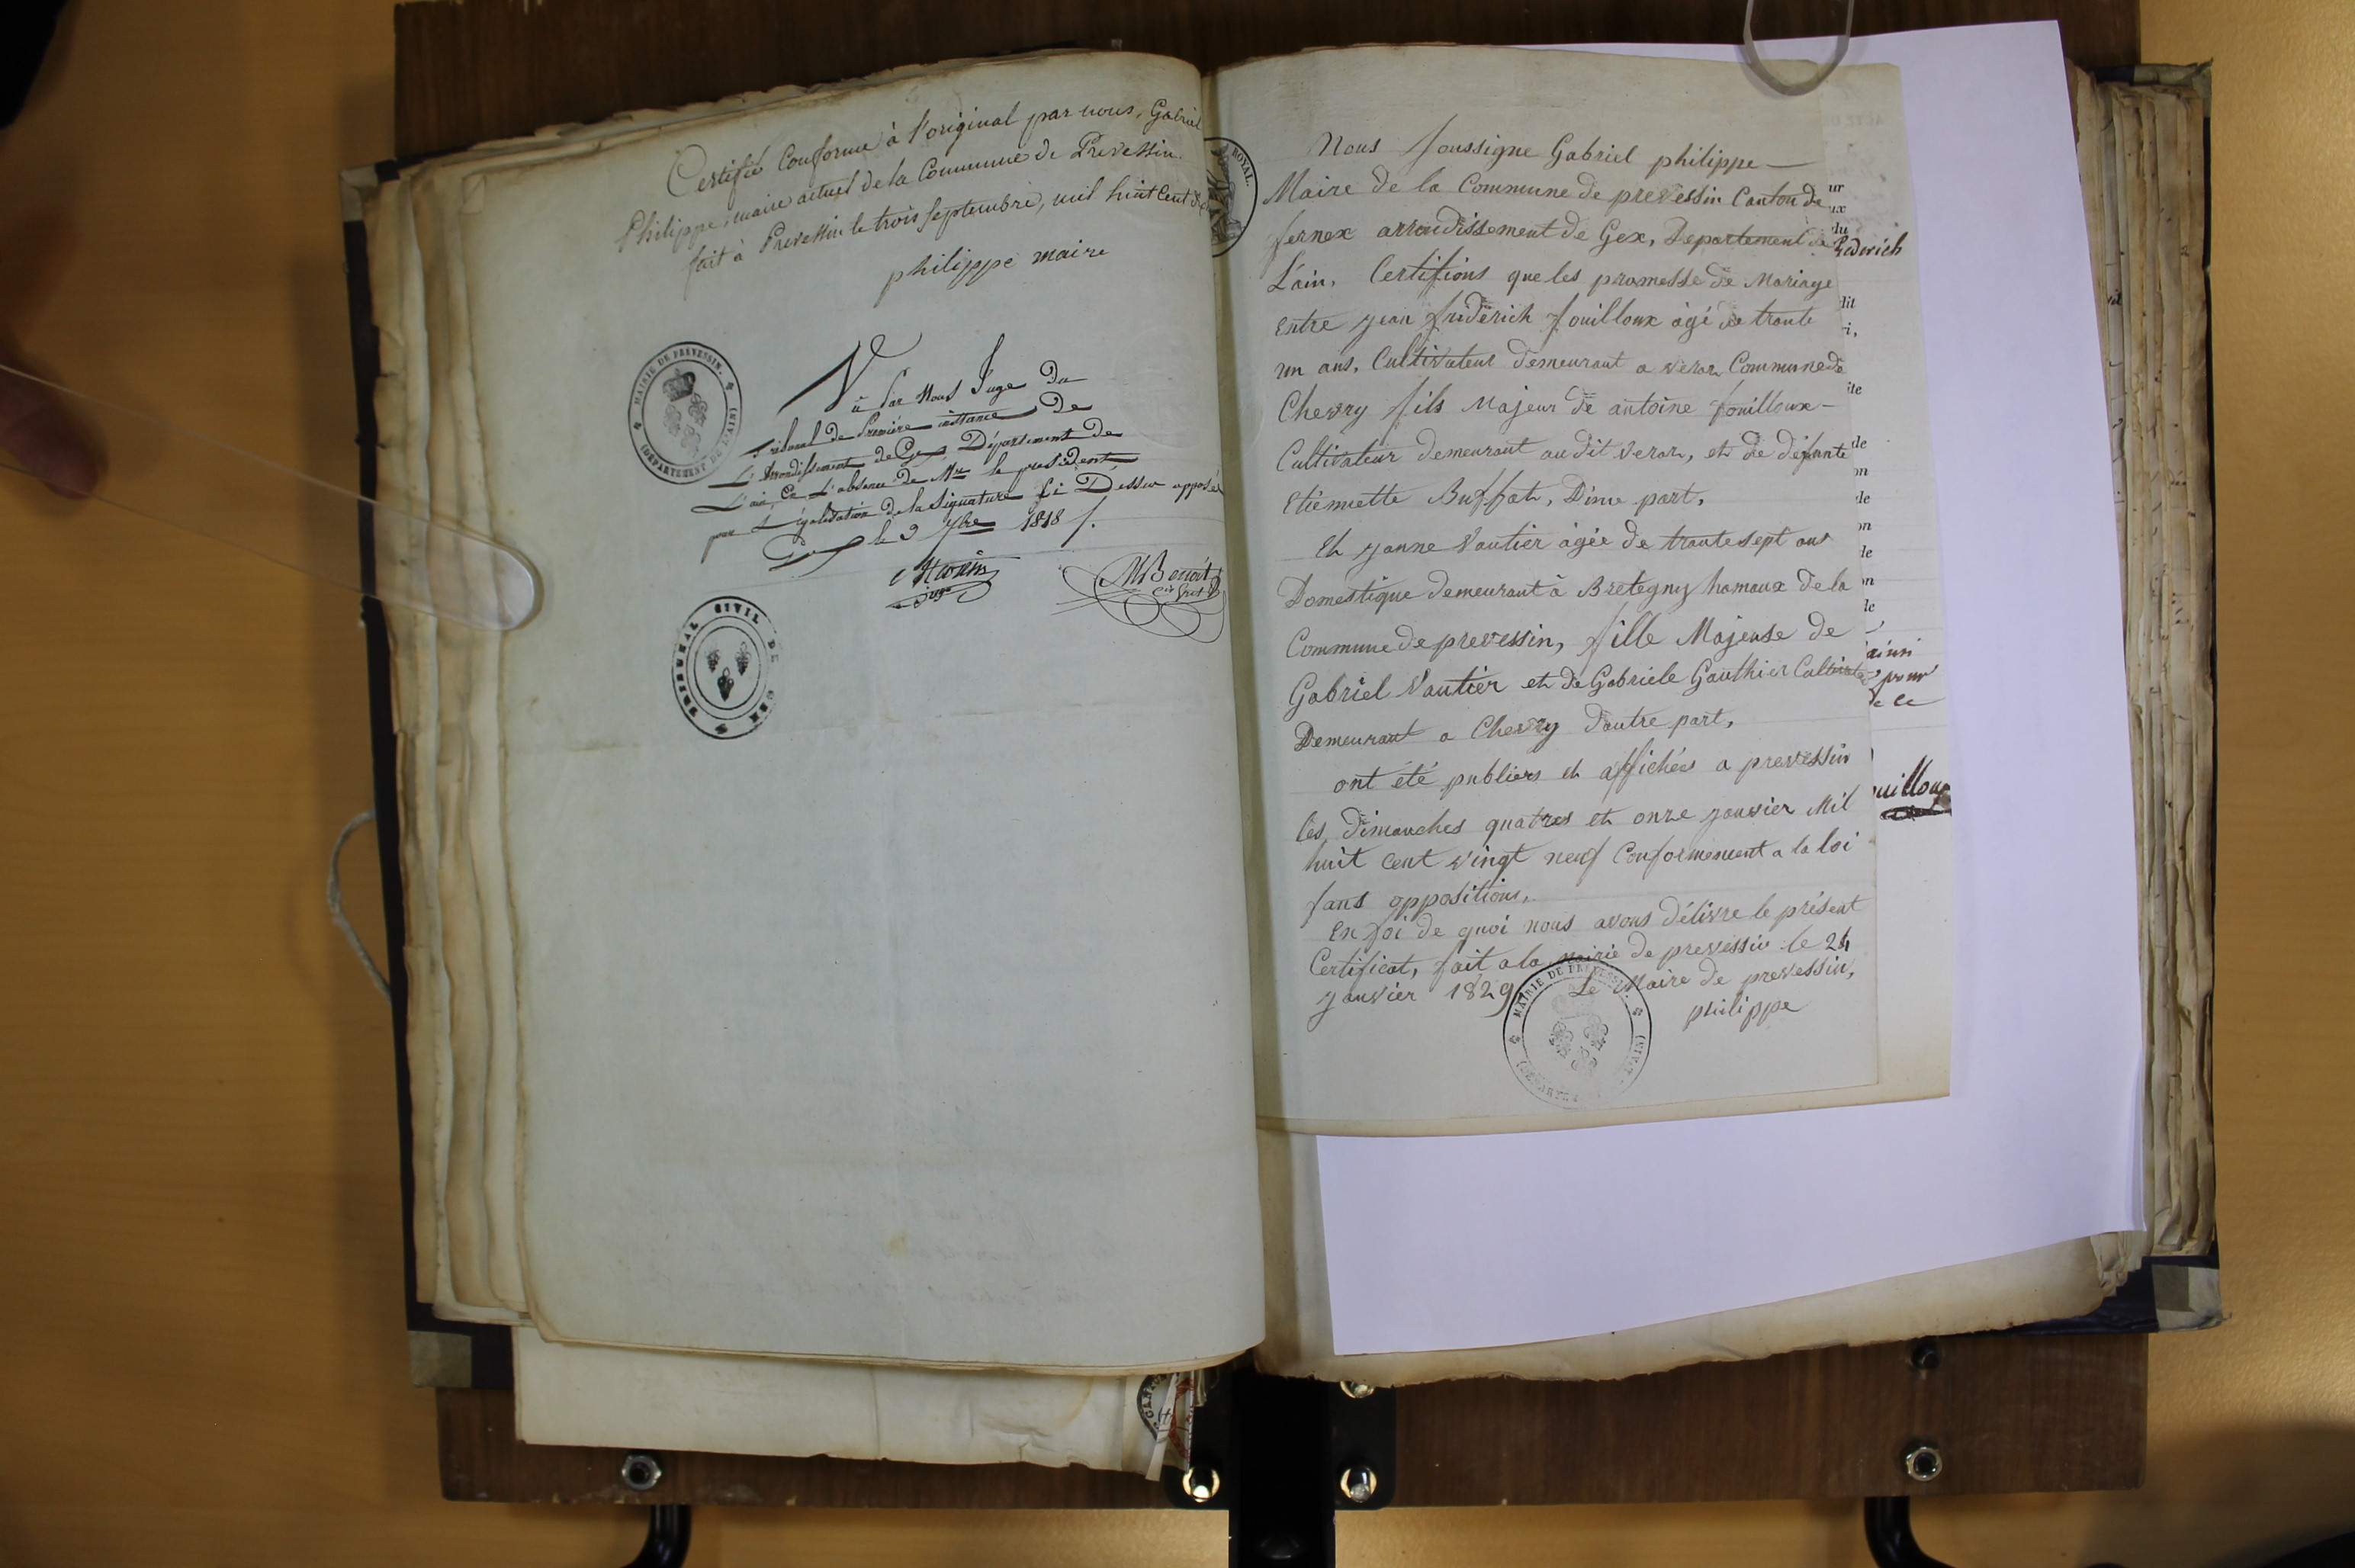 Certifié Conforme à l'original par nous, Gabriel
Philippe, maire actuel de la Commune de Prevessin.
fait à Prevessin le trois septembre, mil huit Cent
philippe maire
MAIRIE DE PREVESSIN.
(DÉPARTEMENT DE L'AIN)
Vu Par Nous Juge Du
Tribunal de Première instance De
L'Arrondissement de Gex, Département de
L'ain, En L'absence de Mr le président,
pour Légalisation de la Signature Ci Dessus apposée
Gex le 3 7bre 1818
juge
MBenoit
TRIBUNAL CIVIL DE GEX
ROYAL.
Nous soussigne Gabriel philippe
Maire de la Commune de prevessin Canton de
fernex arrondissement de Gex, Departement de
L'ain, Certifions que les promesse de Mariage
Entre jean frederich fouilloux agé de trante
un ans, Cultivateur demeurant a veraz Commune de
Chevry fils Majeur de antoine fouilloux
Cultivateur demeurant au dit veraz, et de défunte
Etiennette Buffat, D'une part,
Et janne Vautier agée de trante sept ans
Domestique demeurant à Bretegny hamaux de la
Commune de prevessin, fille Majeuse de
Gabriel Vautier et de Gabriele Gauthier
Demeurant a Chevry D'autre part,
ont été publiers et affichées a prevessin
les dimanches quatres et onze janvier Mil
huit cent vingt neuf Conformement a la loi
sans oppositions,
En foi de quoi nous avons délivre le présent
Certificat, fait a la Mairie de prevessin le 24
janvier 1829 Le Maire de prevessin,
philippe
MAIRIE DE PREVESSIN.
ur
ux
du
frederich
dit
de
on
de
on
de
on
de
ainsi
pour
ce
ouilloux